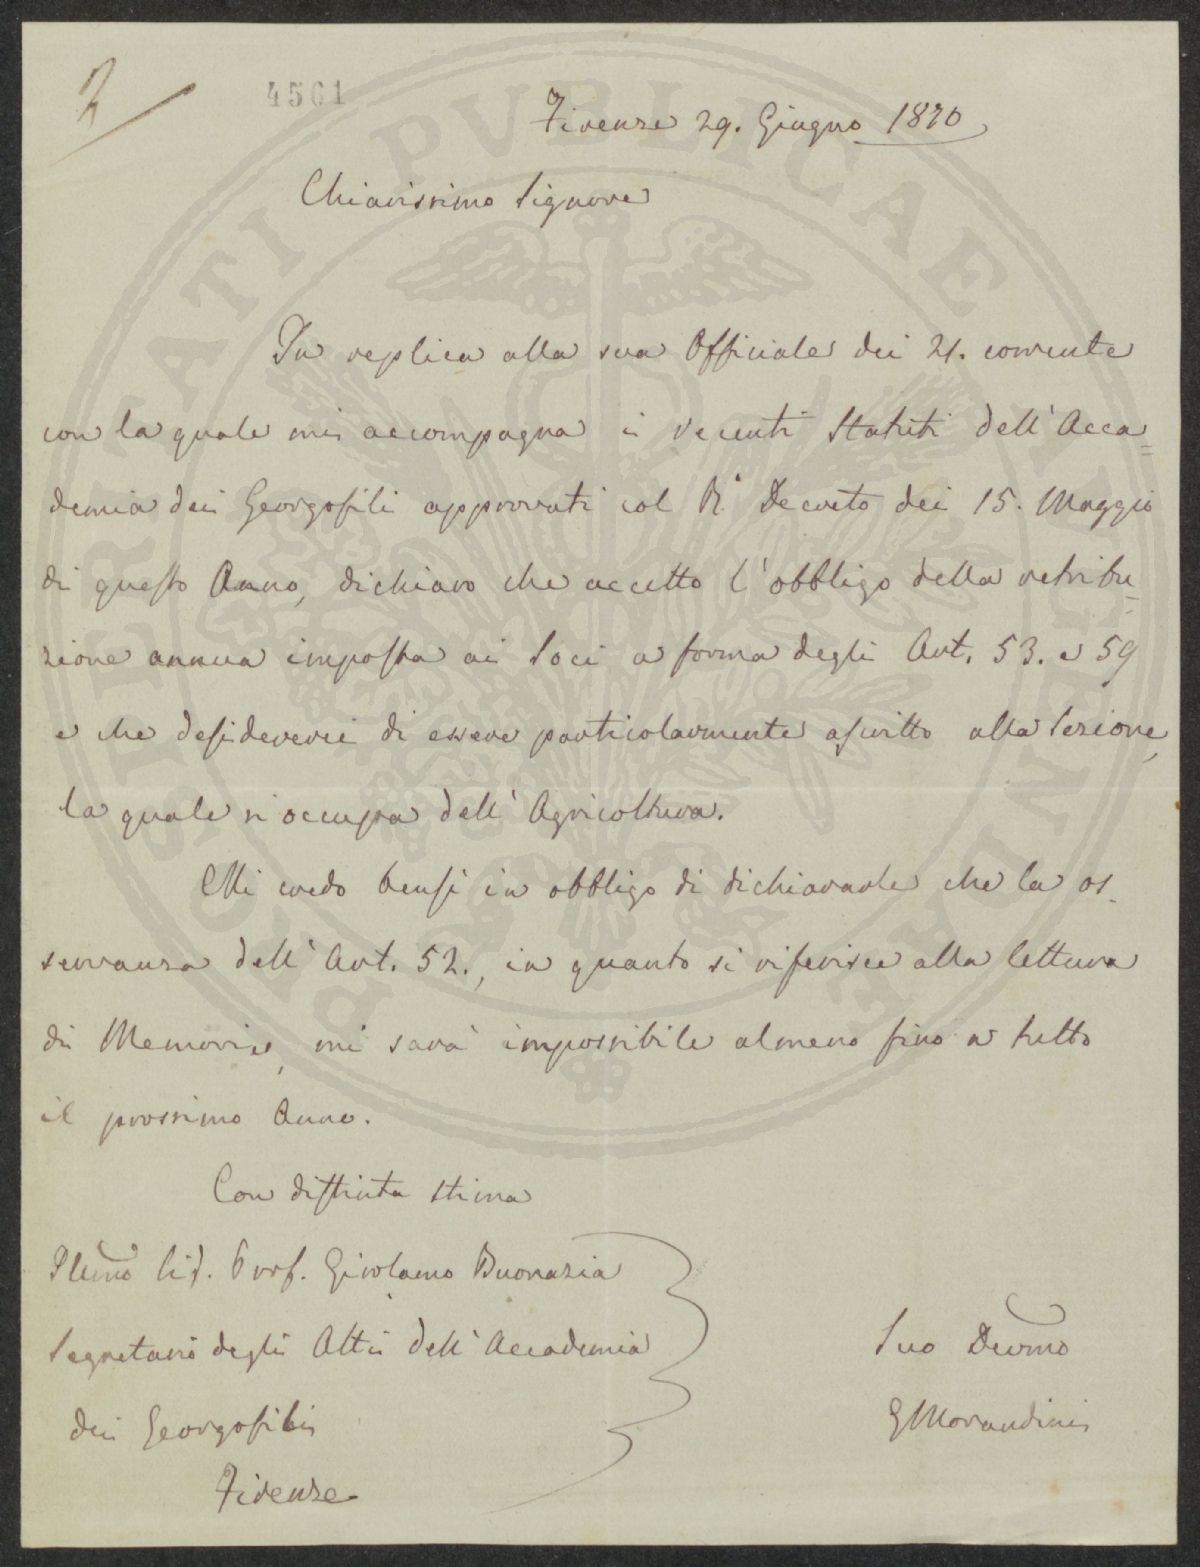 4561
Firenze 29. Giugno 1870
Chiarissimo Signore
In replica alla sua Officiale dei 21. corrente
con la quale mi accompagna i recenti Statuti dell'Acca=
demia dei Georgofili approvati col R.° Decreto dei 15. Maggio
di questo Anno, dichiaro che accetto l'obbligo della retribu=
zione annua imposta ai Soci a forma degli Art. 53. e 59
e che desidererei di essere particolarmente ascritto alla Sezione,
la quale si occupa dell'Agricoltura.
Mi credo bensì in obbligo di dichiararle che la os-
servanza dell'Art. 52., in quanto si riferisce alla lettura
di Memorie, mi sarà impossibile almeno fino a tutto
il prossimo Anno.
Con distinta stima
Illmo Sig. Prof. Girolamo Buonazia
Segretario degli Atti dell'Accademia
dei Georgofili
Firenze
Suo Devmo
G Morandini
PROSPERITATI PVBLICAE AVGENDAE